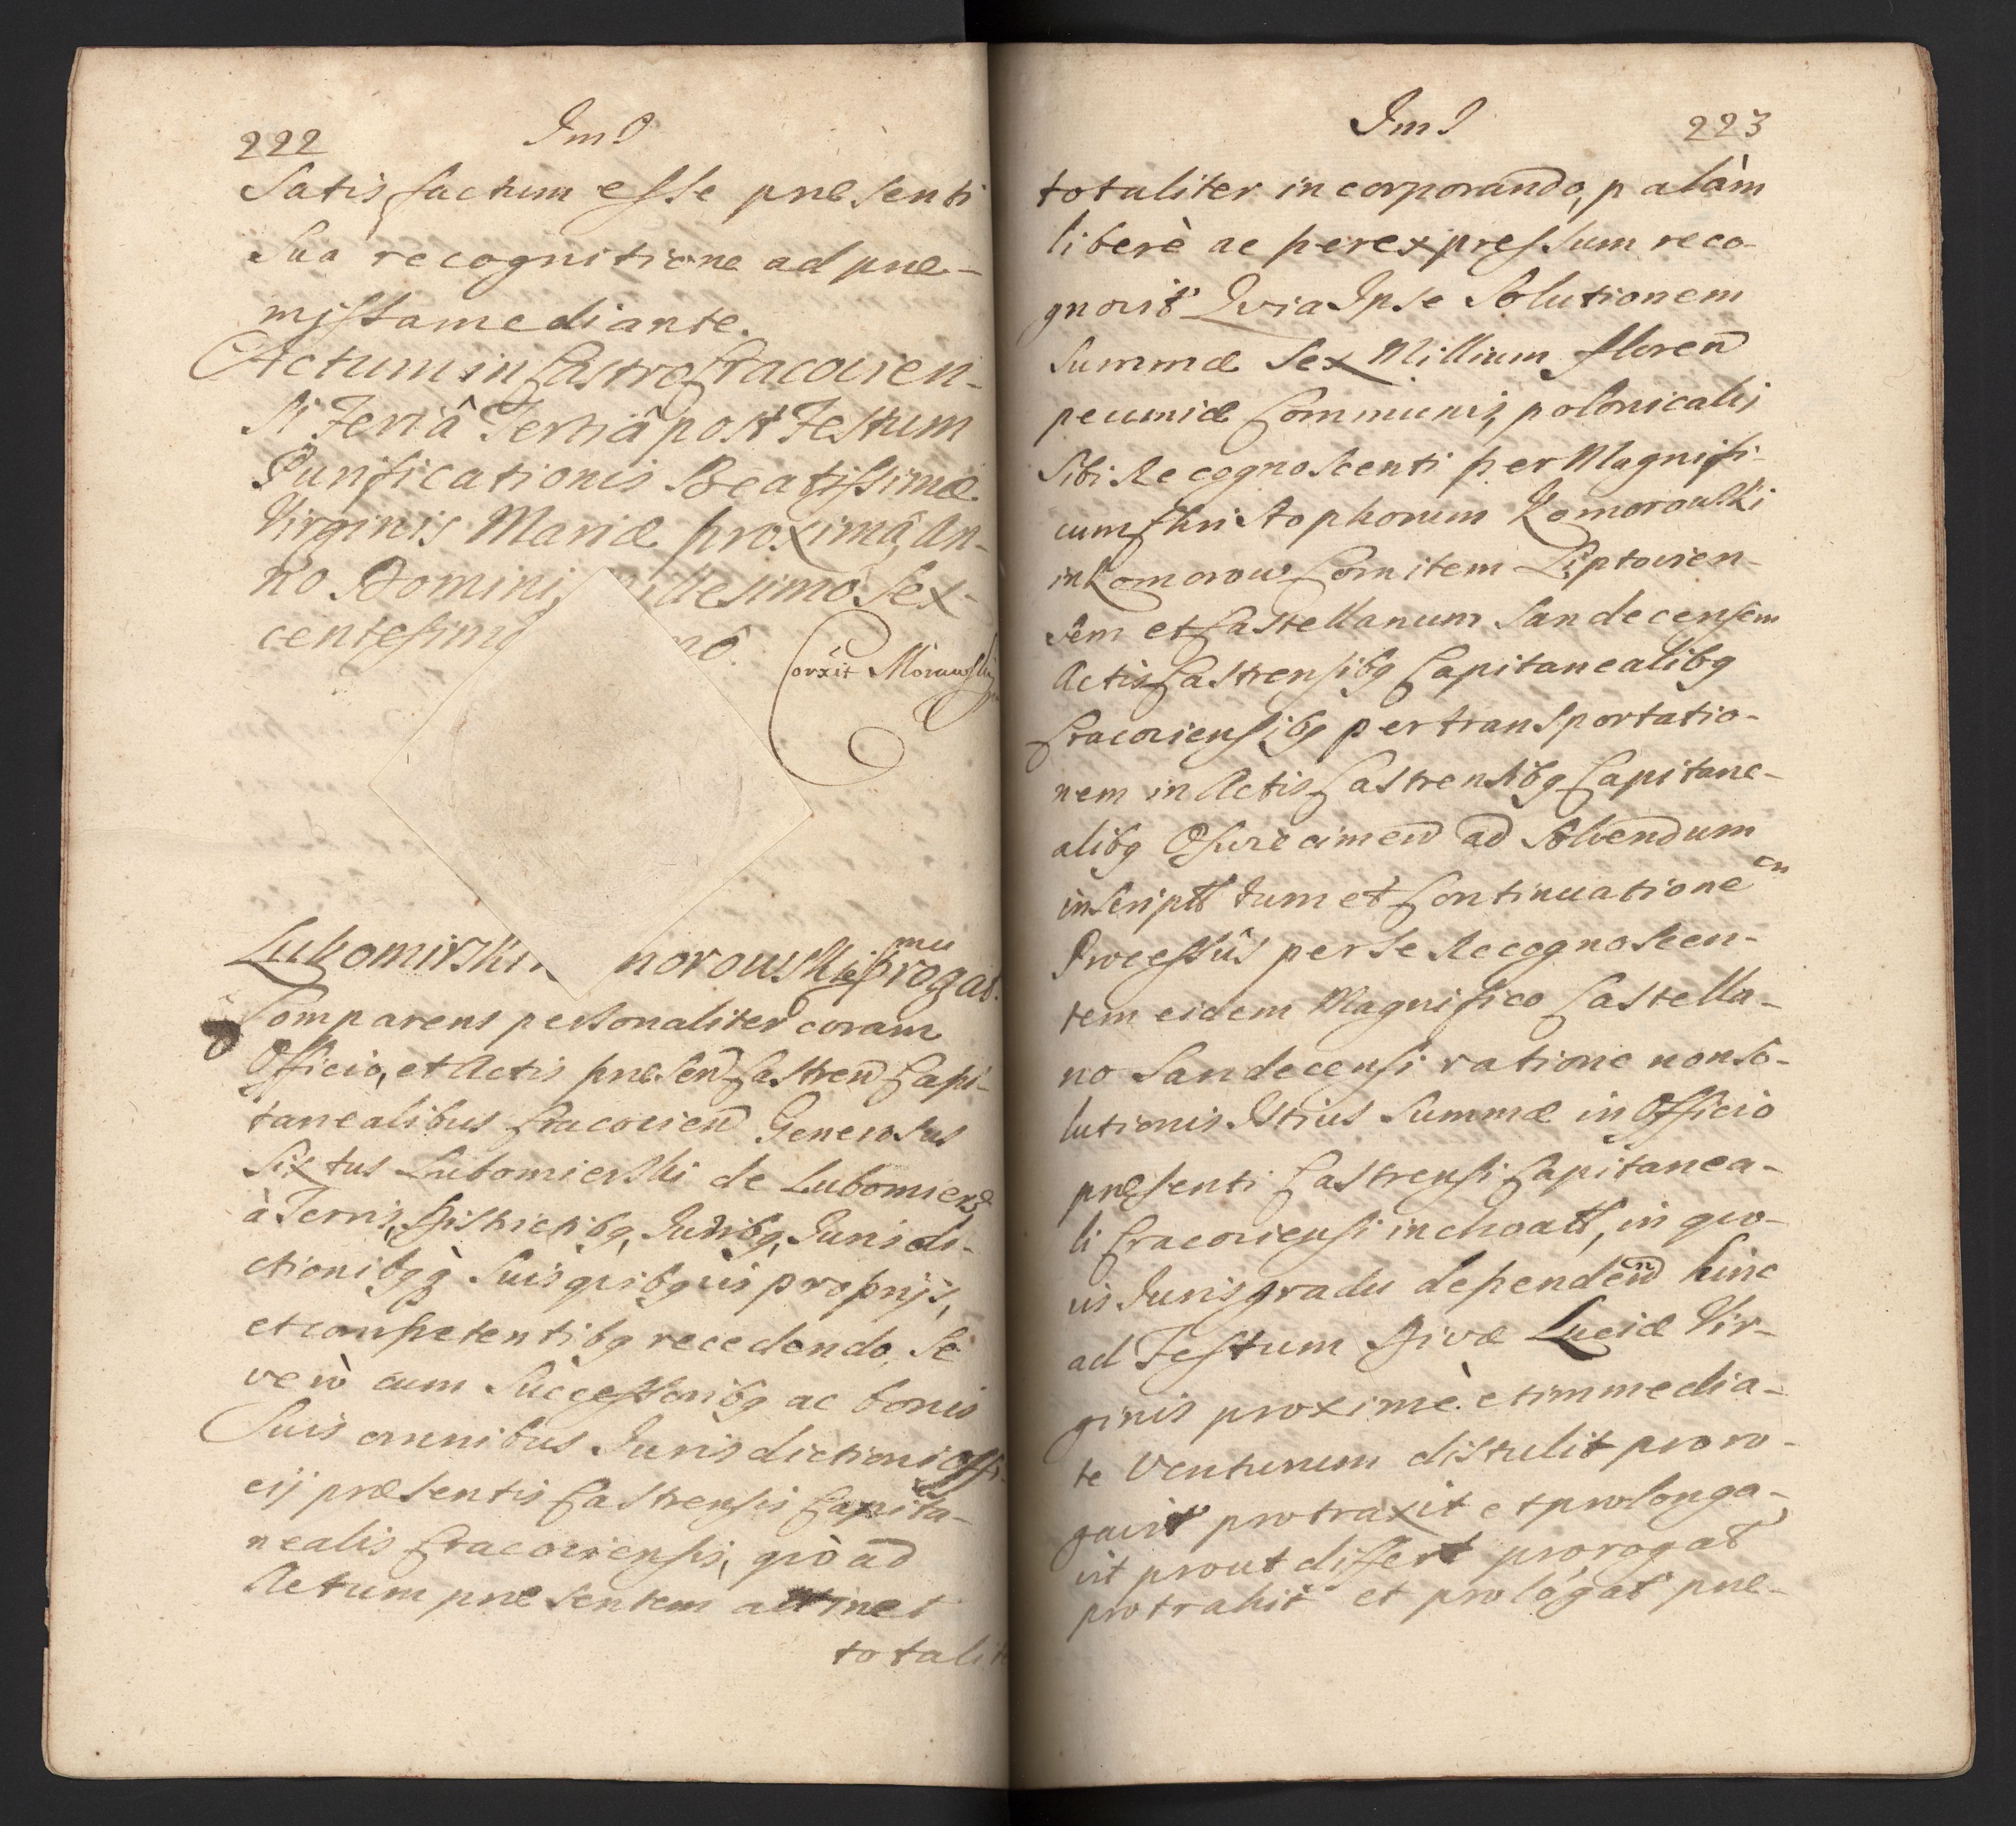 222 ImJ
Satisfactum esse præsenti
Sua recognitione ad præ-
missa mediante.
Actum in Castro Cracovien-
si Feriâ Tertiâ post Festum
Purificationis Beatissimæ
Virginis Mariæ proximâ, An-
no Domini, llesimô Sex-
centesimô mô.
Corxit Morawsky
Lubomirski norowski mu progat.
Comparens personaliter coram
Officio, et Actis præsen Castren Capi-
tanealibus Cracovien Generosus
Sixtus Lubomierski de Lubomierz
à Terris, Districtibq, Juribq, Jurisdi-
ctionibqq Suis quibqvis proprijs,
et competentibq recedendo, Se
verò cum Successoribq ac bonis
Suis omnibus Jurisdictioni Offi-
cij præsentis Castrensis Capita-
nealis Cracoviensis, qvò ad
Actum præsentem attinet
totalit
ImJ 223
totaliter incorporando, palàm
liberè ac per expressum reco-
gnovit Qvia Ipse Solutionem
Summæ Sex Millium floren
pecuniæ Communis, polonicalis
Sibi Recognoscenti per Magnifi-
cum Christophorum Komorowski
in Komorow Comitem Liptovien-
sem et Castellanum Sandecensem
Actis Castrensibq Capitanealibq
Cracoviensibq per transportatio-
nem in Actis Castrensibq Capitane-
alibq Osviecimen ad Solvendum
inscriptt tum et Continuationem
Processûs per se Recognoscen-
tem eidem Magnifico Castella-
no Sandecensi ratione non So-
lutionis Istius Summæ in Officio
præsenti Castrensi Capitanea-
li Cracoviensi inchoatt, in qvo-
vis Juris gradu dependen hinc
ad Festum Divæ Luciæ Vir-
ginis proximè et immedia-
te Venturum distulit proro-
gavit protraxit et prolonga-
vit prout differt prorogat
protrahit et prologat præ-